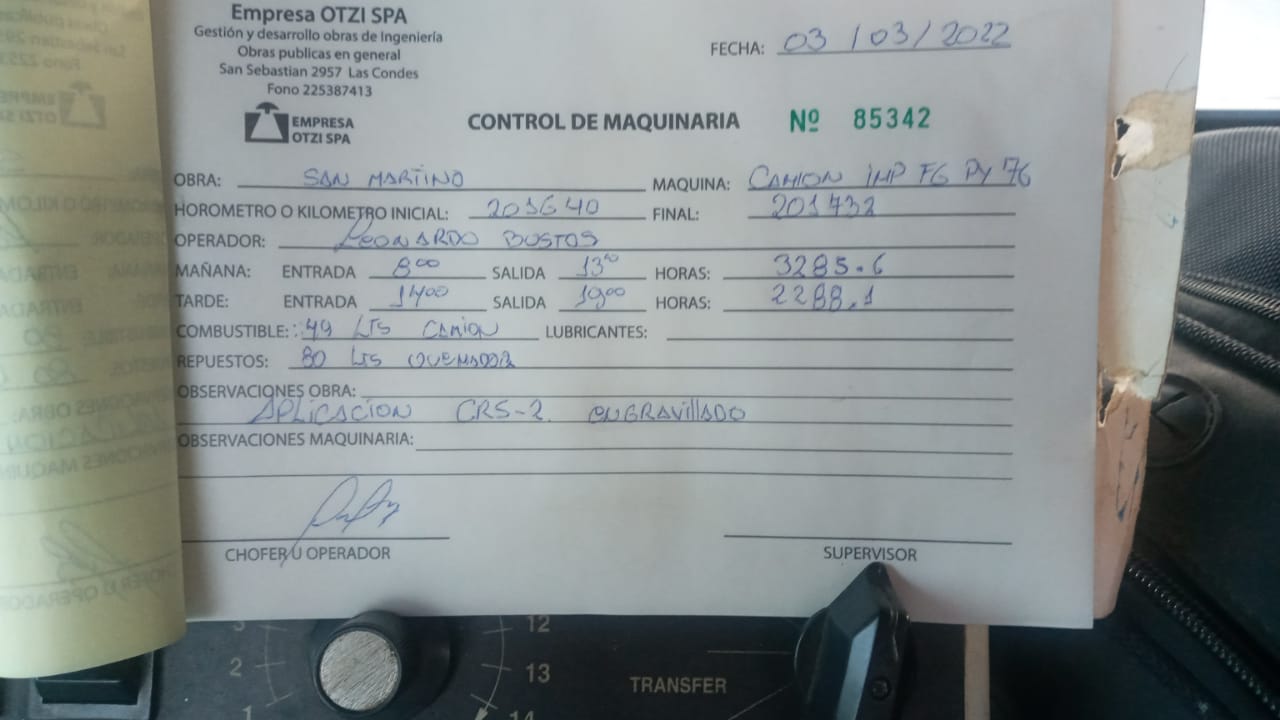 Empresa OTZI SPA
Gestión y desarrollo obras de Ingeniería
Obras publicas en general
San Sebastian 2957 Las Condes
Fono 225387413
EMPRESA
OTZI SPA
FECHA: 03 / 03 / 2022
CONTROL DE MAQUINARIA Nº 85342
OBRA: SAN MARTINO MAQUINA: CAMION IMP FG PY 76
HOROMETRO O KILOMETRO INICIAL: 201640 FINAL: 201732
OPERADOR: LEONARDO BUSTOS
MAÑANA: ENTRADA 8°° SALIDA 13°° HORAS: 3285.6
TARDE: ENTRADA 14°° SALIDA 19°° HORAS: 2288.1
COMBUSTIBLE: 49 LTS CAMION LUBRICANTES:
REPUESTOS: 80 LTS QUEMADOR
OBSERVACIONES OBRA:
APLICACION CRS-2 ENGRAVILLADO
OBSERVACIONES MAQUINARIA:
CHOFER U OPERADOR SUPERVISOR
3 12
2 13 TRANSFER
1 14